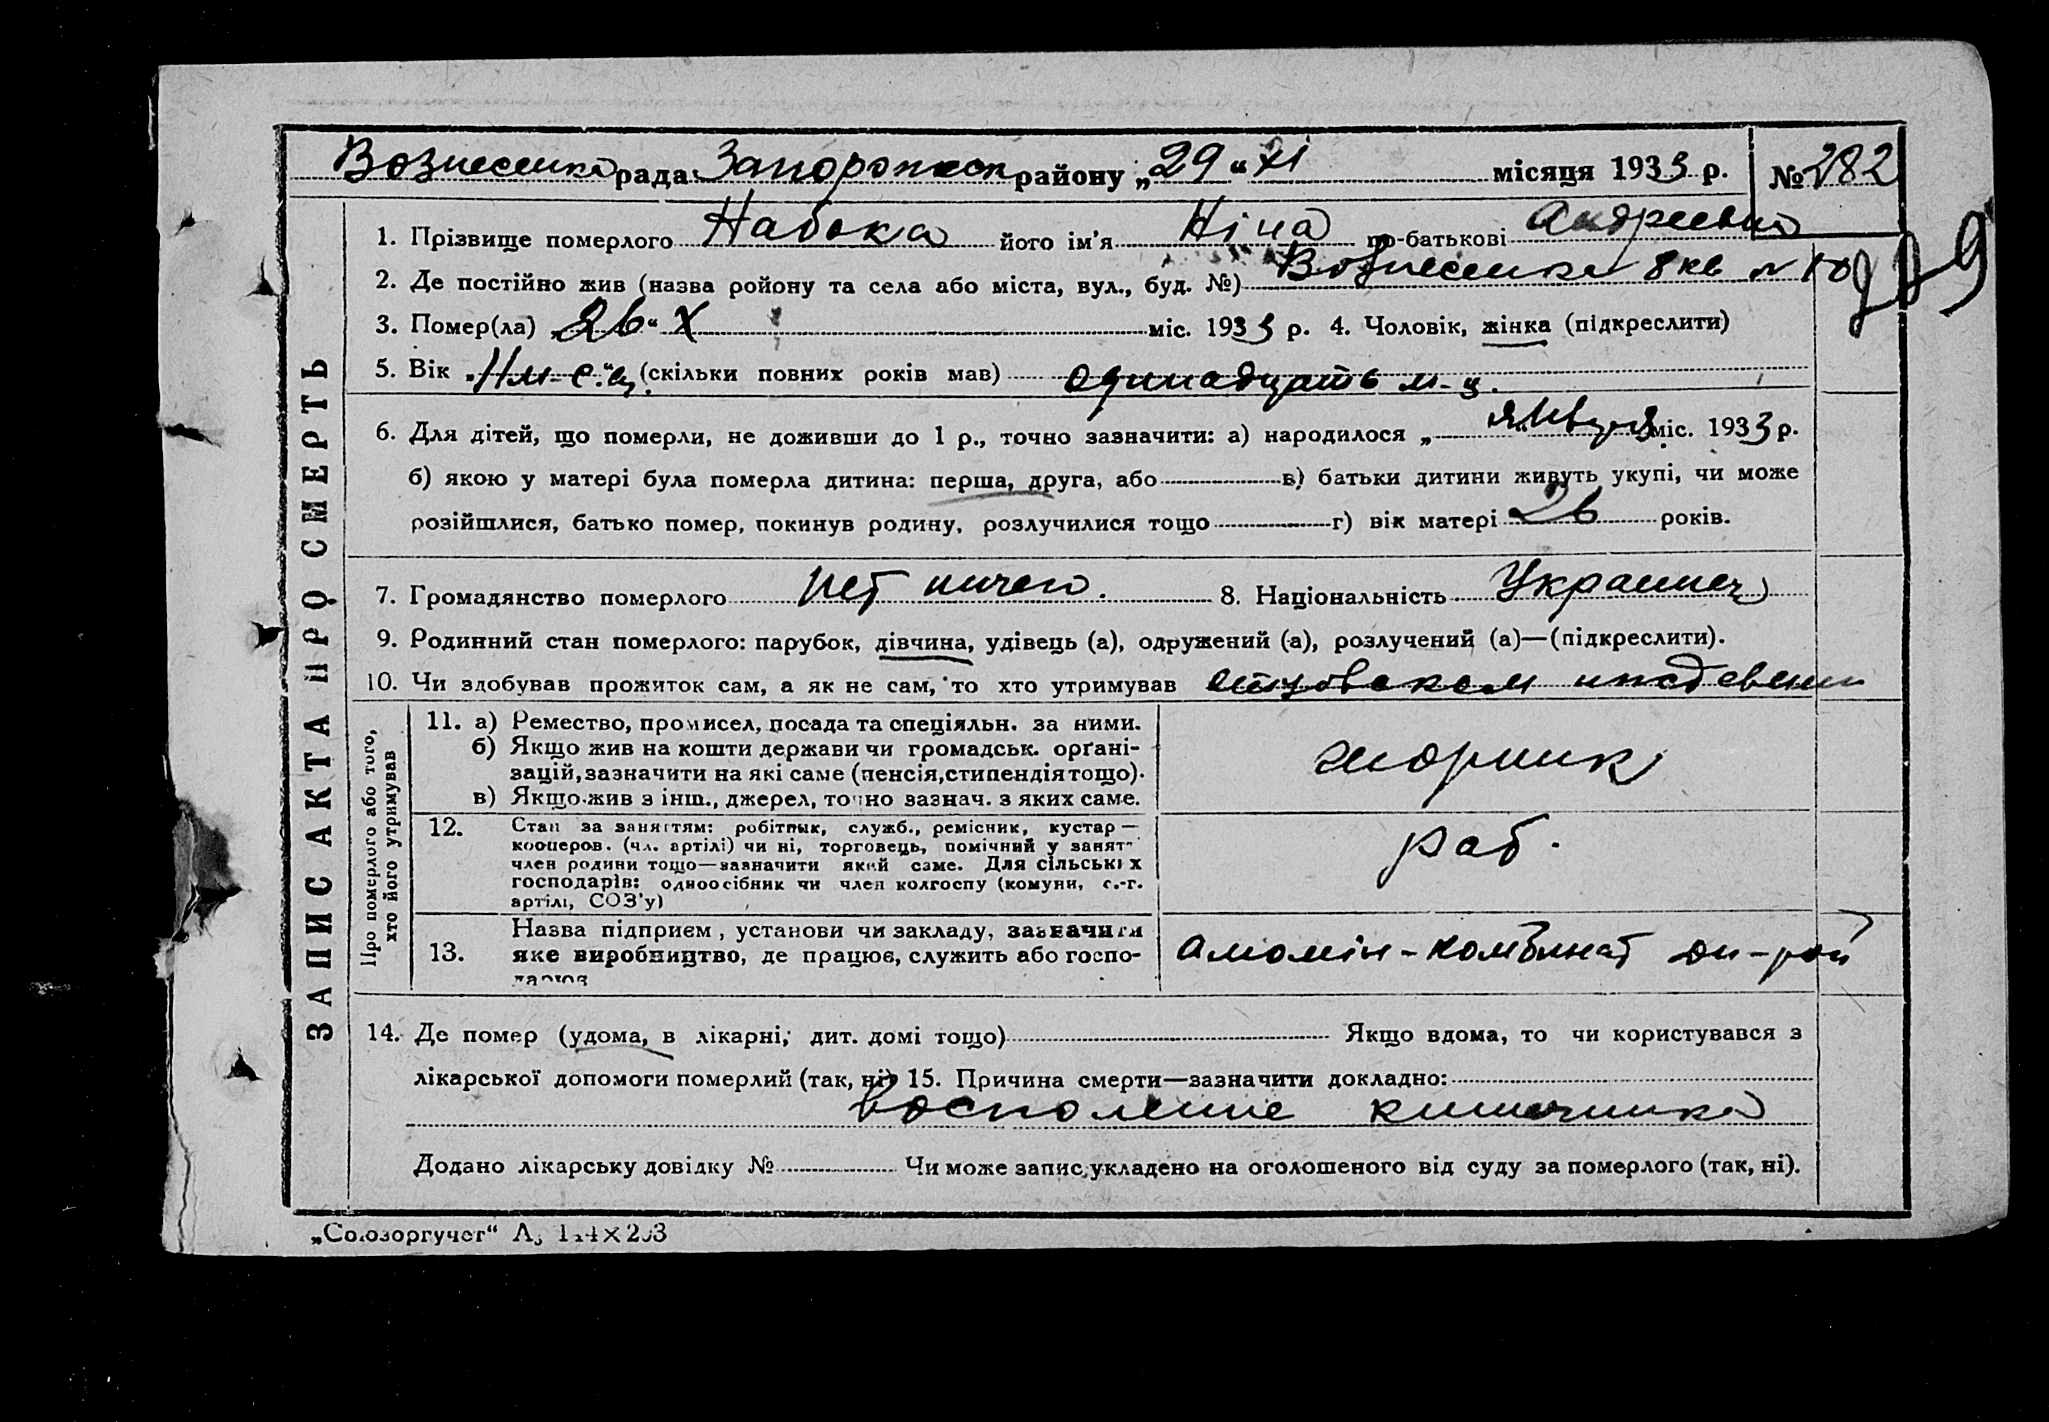 Вознесенка рада Запорожск району „29“ XI місяця 1933 р. № 282
1. Прізвище померлого Набока його ім’я Ніна по-батькові Андреевна
2. Де постійно жив (назва ройону та села або міста, вул., буд. №) Вознесенка 8 кв № 10
3. Помер(ла) „26“ X міс. 1933 р. 4. Чоловік, жінка (підкреслити)
5. Вік (скільки повних років мав) одинадцать м-ц.
6. Для дітей, що померли, не доживши до 1 р., точно зазначити: а) народилося „ января міс. 1933 р.
б) якою у матері була померла дитина: перша, друга, або в) батьки дитини живуть укупі, чи може
розійшлися, батько помер, покинув родину, розлучилися тощо г) вік матері 26 років.
7. Громадянство померлого нет ничего. 8. Національність Украинец
9. Родинний стан померлого: парубок, дівчина, удівець (а), одружений (а), розлучений (а)—(підкреслити).
10. Чи здобував прожиток сам, а як не сам, то хто утримував отцовском иждевении
ЗАПИС АКТА ПРО СМЕРТЬ
Про померлого або того, хто його утримував
11. а) Ремество, промисел, посада та спеціяльн. за ними.
б) Якщо жив на кошти держави чи громадськ. орґані-
зацій, зазначити на які саме (пенсія, стипендія тощо).
в) Якщо жив з інш., джерел, точно зазнач. з яких саме.
12. Стан за заняттям: робітник, служб., ремісник, кустар —
кооперов. (чл. артілі) чи ні, торговець, помічний у занят-
член родини тощо—зазначити який саме. Для сільських
господарів: одноосібник чи член колгоспу (комуни, с.-г.
артілі, СОЗ’у)
раб.
13. Назва підприєм, установи чи закладу, зазначити
яке виробництво, де працює, служить або госпо-
дарює
Алюмін-комбинат
14. Де помер (удома, в лікарні, дит. домі тощо) Якщо вдома, то чи користувався з
лікарської допомоги померлий (так, ні) 15. Причина смерти—зазначити докладно:
Восполение кишечника
Додано лікарську довідку № Чи може запис укладено на оголошеного від суду за померлого (так, ні).
„Союзоргучет“